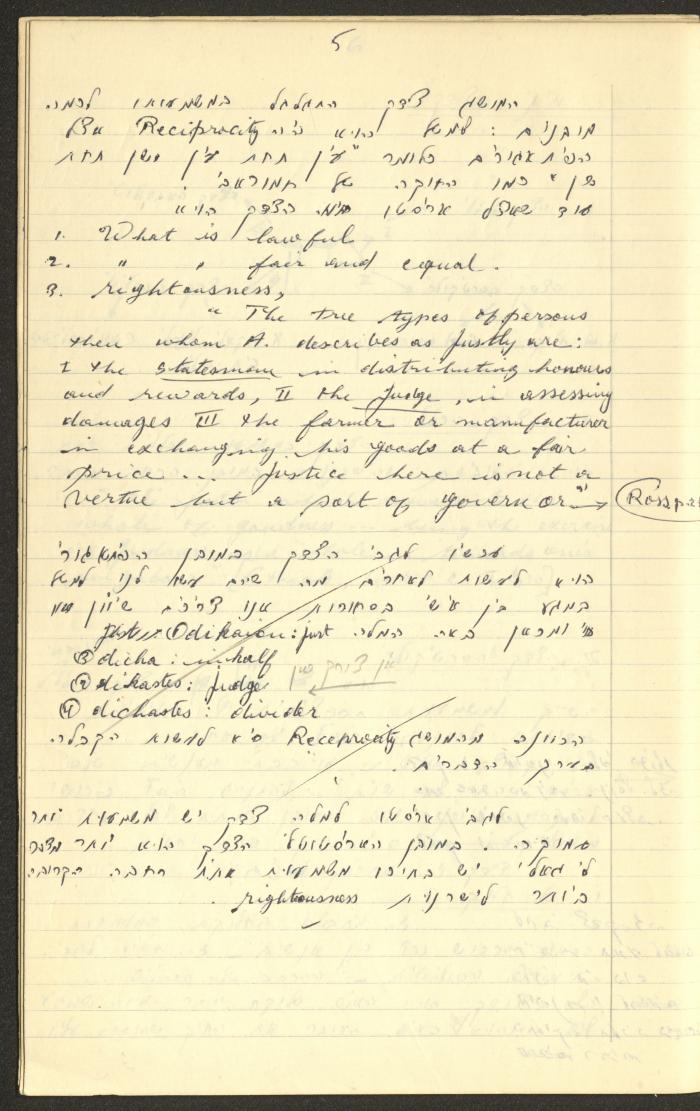 5
המושג צדק התגלגל במשמעותו לכמה
מובנים : למשל הוא היה Reciprocity אצל
הפיתאגורים כלומר "עין תחת עין ושן תחת
שן" כמו החוקה של חמוראבי .
עוד שאצל אריסטו הצדק הוא
1. What is lawful
2. " " fair and equal.
3. rightousness,
" The true types of persons
then whom A. describes as justly are:
I the statesman in distributing honours
and rewards, II the Judge, in assessing
damages III the farmer or manufacturer
in exchanging his goods at a fair
price ... Justice here is not a
vertue but a sort of governor" →
עכשיו לגבי הצדק במובן הפיתאגורי
הוא לעשות לאחרים מה שהם עשו לנו למשל
במגע בין איש בסחורות אנו צריכים שיוון
ומכאן באה המלה ① dikaion: just
③ dicha : in half
② dikastes: Judge
④ dichastes : divider
הכוונה מהמושג Reciprocity היא למשוא הקבלה
בערך הדברים.
לגבי אריסטו למלה צדק יש משמעות יותר
עמוקה . במובן האריסטוטלי הצדק הוא יותר
יש בחירו משמעות אחת רחבה הקרובה
ביותר לישרנות rightousness .